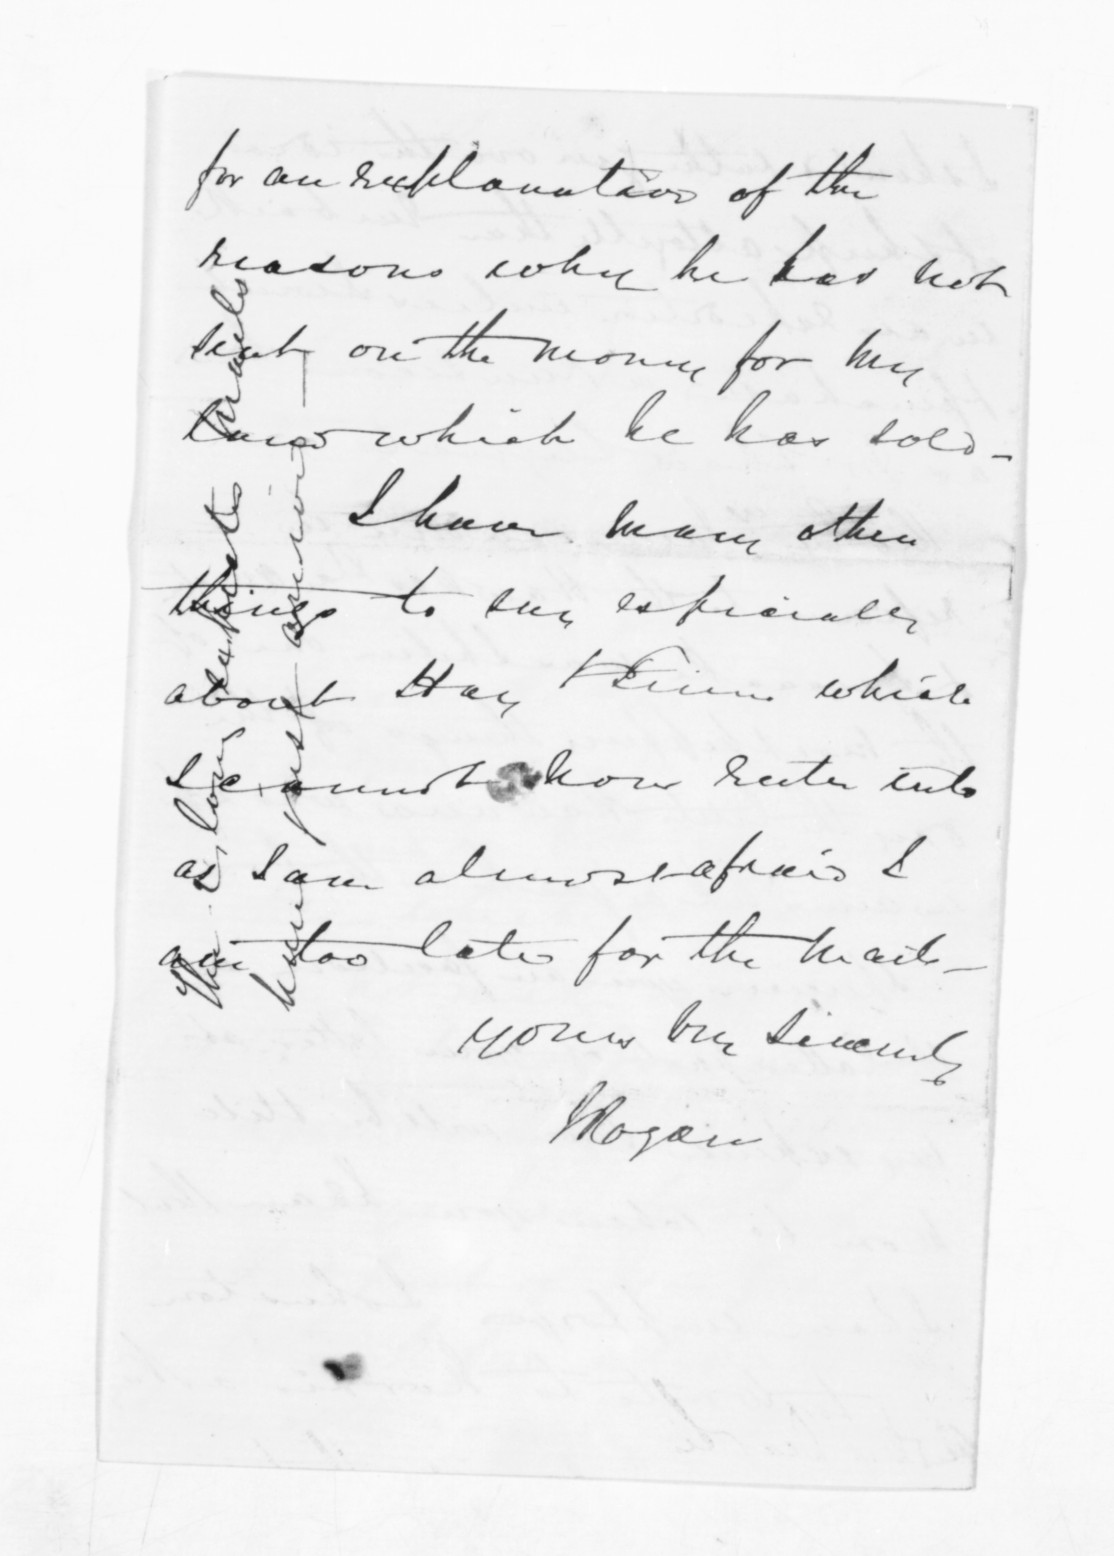 for an explanation of the
reasons why he has not
sent on the money for my
land which he has sold -
I have many other
things to say especially
about Hay which
I cannot now enter into
as I am almost afraid I
am too late for the mail -
yours very sincerely
J Rogan
The long expected mails
have just arrived -